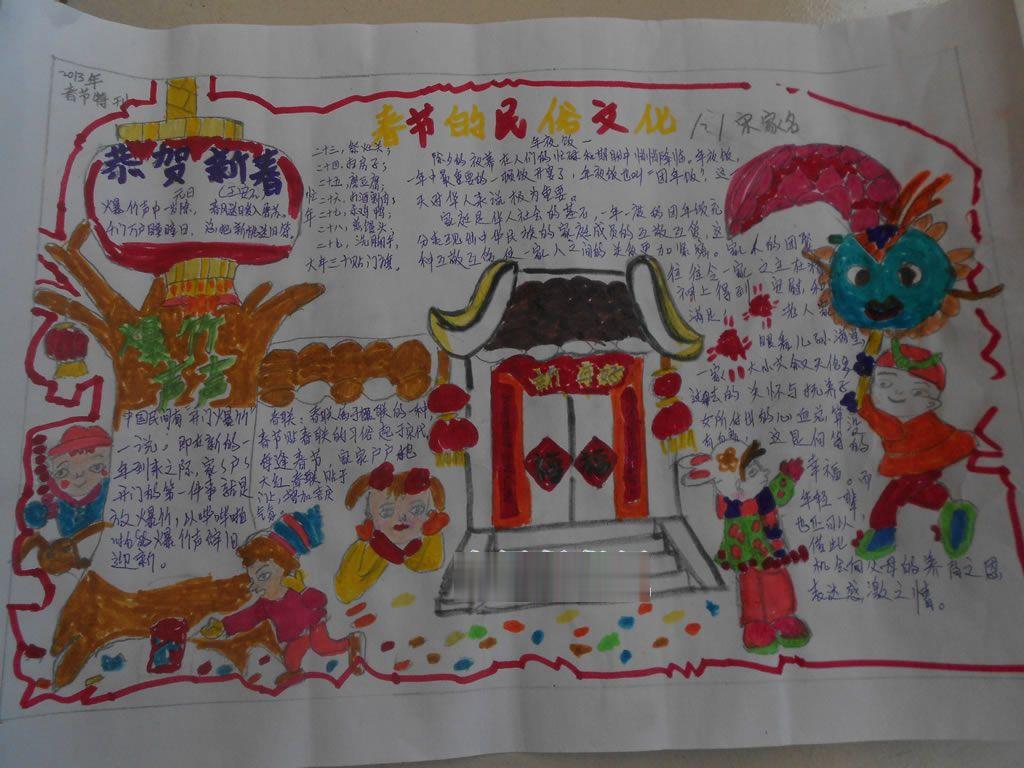 2013年
春节特刊
春节的民俗文化
恭贺新春
元日（王安石）
爆竹声中一岁除，春风送暖入屠苏。
千门万户曈曈日，总把新桃换旧符。
二十三，祭灶关；
二十四，扫房子；
二十五，磨豆腐；
忙二十六，
年二十七，杀鸡鸭；
二十八，蒸馒头，
二十九，洗
大年三十贴门旗。
年夜饭
除夕的夜幕在人们的忙碌和期盼中悄悄降临。年夜饭，
一年中最重要的一顿饭开宴了，年夜饭也叫“团年饭”，这一
天对华人来说极为重要。
家庭是华人社会的基石，一年一度的团年饭充
分表现出中华民族的家庭成员的互敬互爱，这
种互敬互爱使一家人之间的关系更加紧密。家人的团聚
往往令一家之主在精
神上得到安慰和
满足，老人家
眼看儿孙满堂，
一家大小共叙天伦，
过去的关怀与抚养子
女所付出的心血总算没
有白费，这是何等的
幸福。而
年轻一辈，
也正可以
借此
机会向父母的养育之恩
表达感激之情。
爆竹
声声
中国民间有“开门爆竹”
一说，即在新的一
年到来之际，家家户户
开门的第一件事就是
放爆竹，以哔哔啪
啪的爆竹声辞旧
迎新。
春联：春联属于楹联的一种
春节贴春联的习俗起于宋代，
每逢春节，家家户户把
大红春联贴于
门上，增加喜庆
气氛。
新年好
福 福